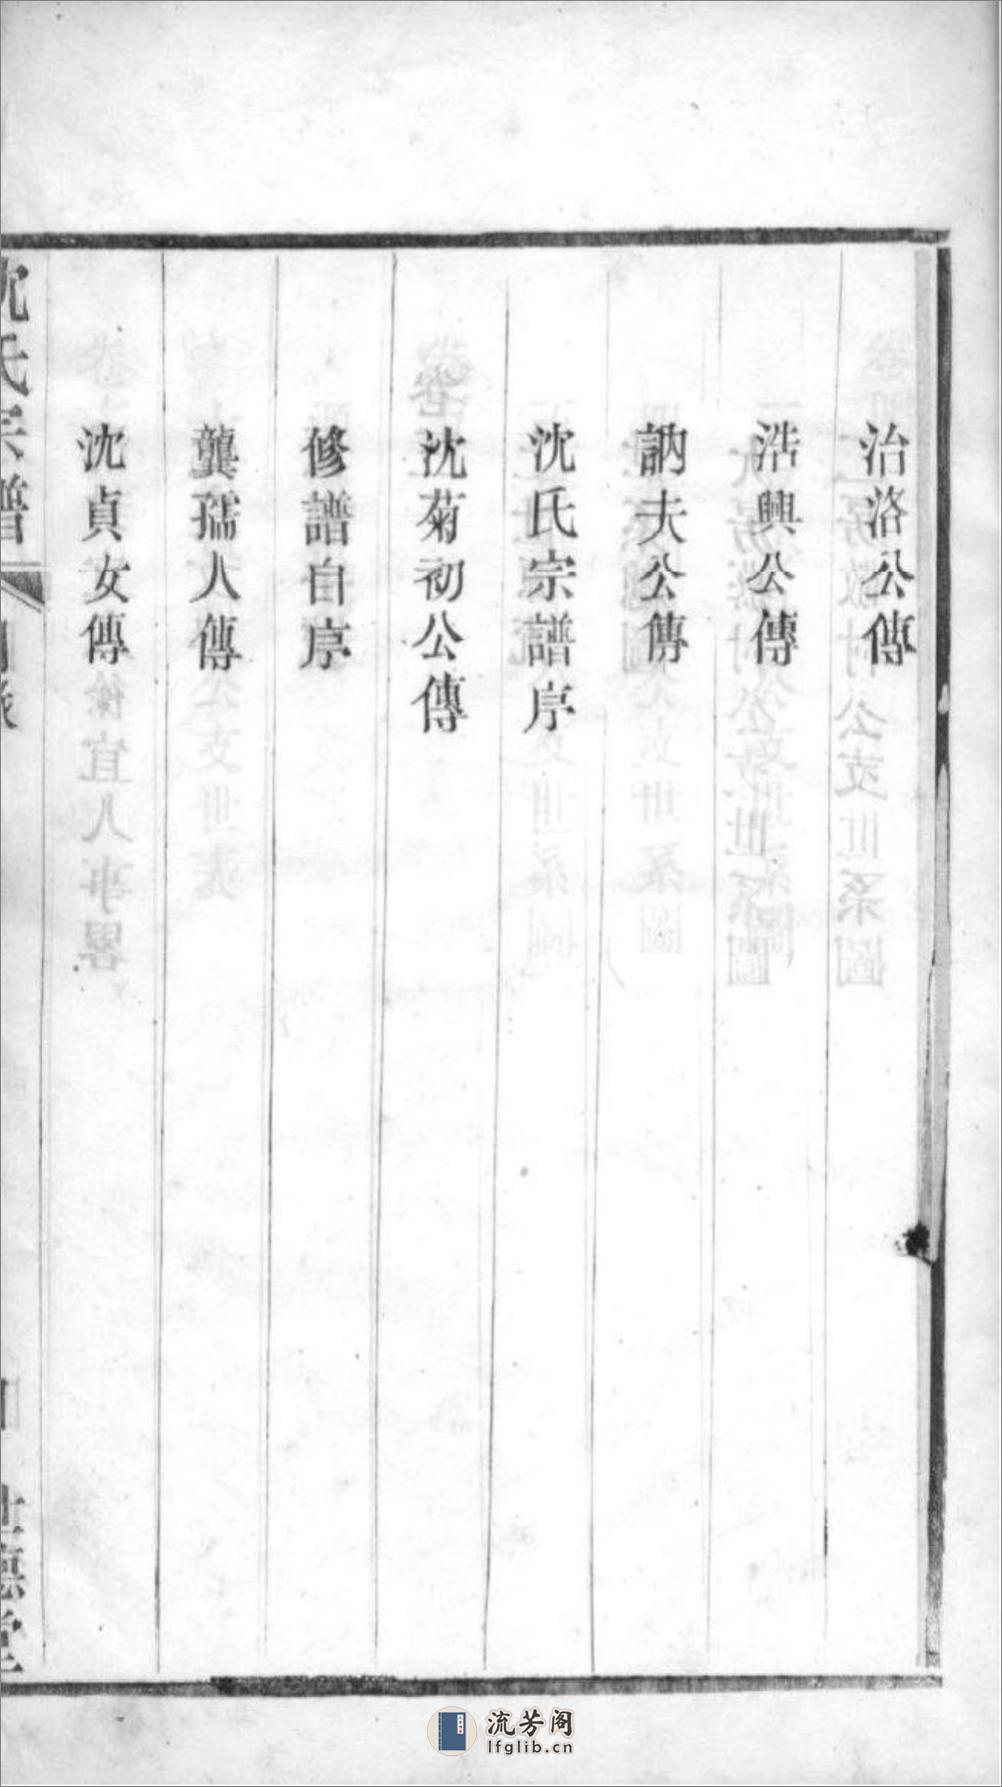 治洛公傳
浩興公傳
訥夫公傳
沈氏宗譜序
沈菊初公傳
修譜自序
龔孺人傳
沈貞女傳
沈氏宗譜
目錄
世德堂
流芳阁
lfglib.cn